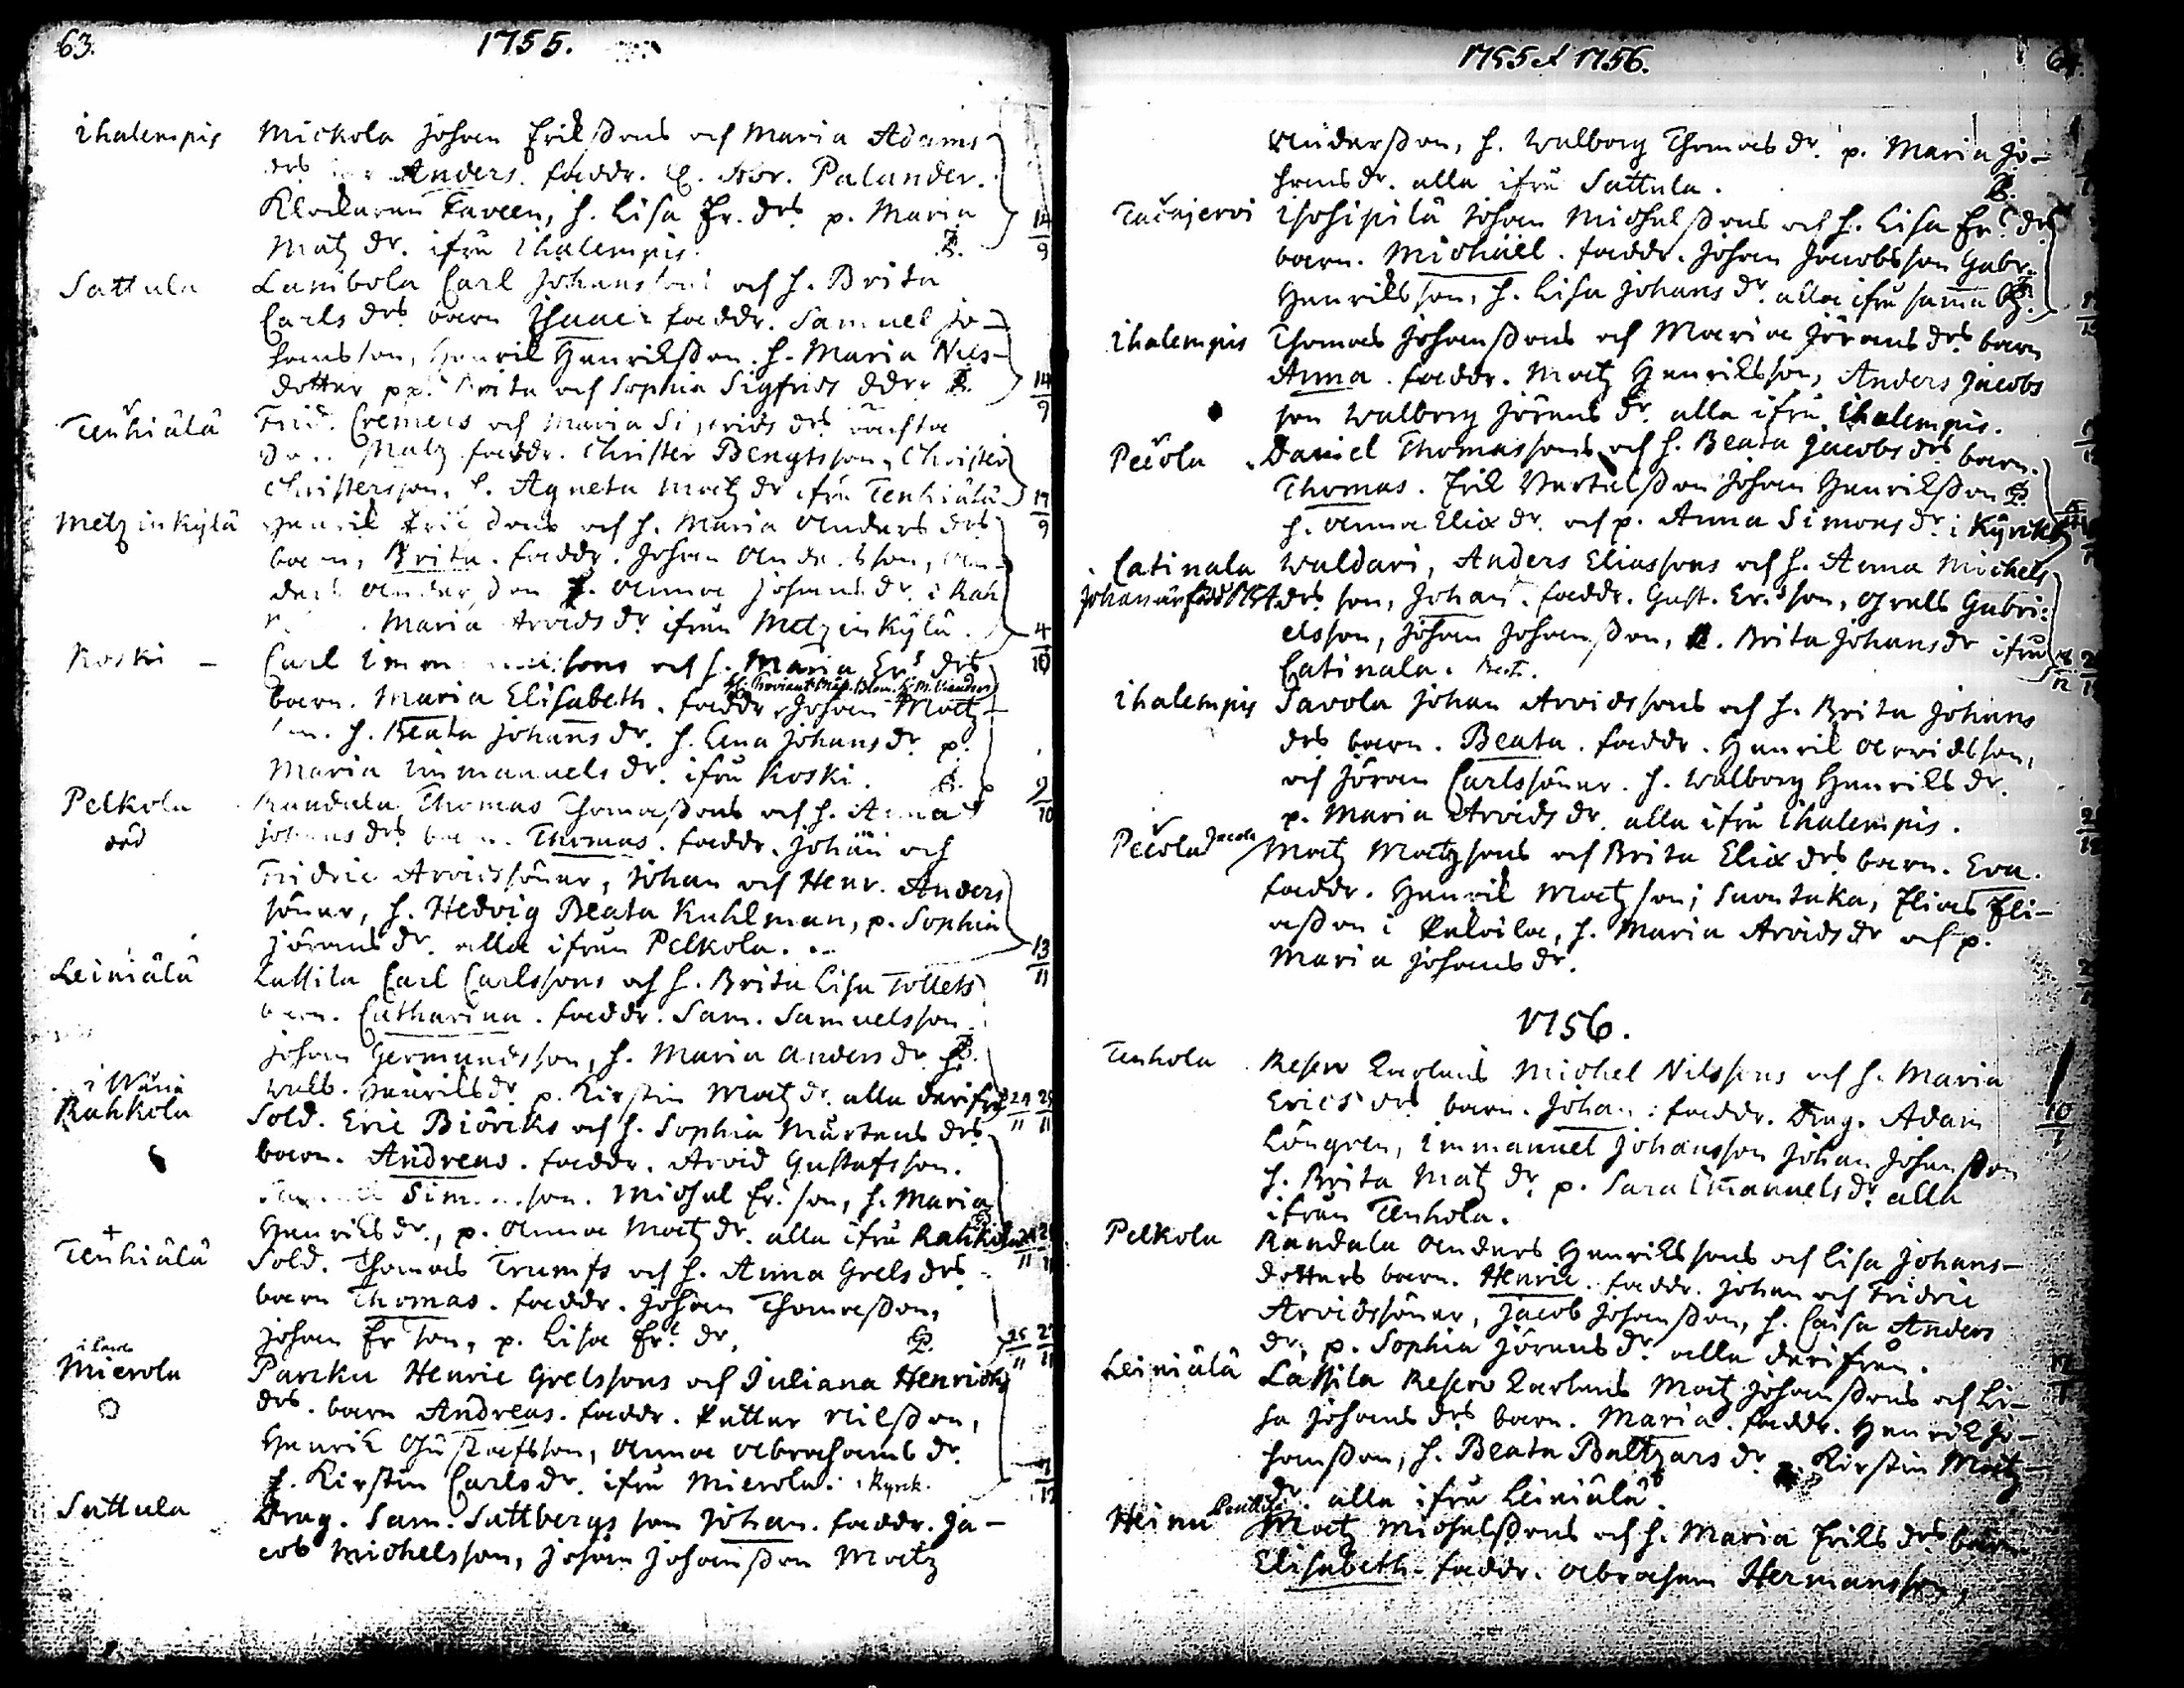 63.
1755.
Ihalempis Mickola Johan Erikßons och Maria Adams
drs Anders. faddr. C. Hor. Palander.
Klockaren Taveen, h. Lisa Er. drs p. Maria
Matz dr. ifrå Ihalempis. 14/9
Sattula Lambola Carl Johanssons och h. Brita
Carls drs barn Isaac. faddr. Samuel Jo-
hansson, Henrik Henrikßon. h. Maria Nils-
dotter pp. Brita och Sophia Sigfrids ddr. 14/9
Tenhiälä Frid. Cremers och Maria Sigfrids drs oächta
Matz faddr. Christer Bengtsson, Christer
Christersson, h. Agneta Matz dr ifrå Tenhiälä 14/9
Metzinkylä Henrik och h. Maria Anders drs
barn, Brita. faddr. Johan Andersson, An-
ders Anderßon h. Anna Johans dr. i Rah
Maria Arvids dr. ifrån Metzinkylä. 4/10
Koski - Carl Immanuelssons och h. Maria Ers drs
barn. Maria Elisabeth. faddr. Johan Matz-
son. h. Beata Johans dr. h. Lena Johans dr. p.
Maria Immanuels dr. ifrå Koski. 9/10
Pelkola Randala Thomas Thomaßons och h. Anna
död Johans drs barn. Thomas. faddr. Johan och
Fridric Arvidssöner, Johan och Henr. Anders
söner, h. Hedvig Beata Kuhlman, p. Sophia
Jörans dr. alla ifrån Pelkola. 13/11
Leiniälä Lassila Carl Carlssons och h. Brita Lisa Tollets
barn. Catharina. faddr. Sam. Samuelsson.
Johan Germundsson, h. Maria Anders dr. h.
Walb. Henriks dr. p. Kirstin Matz dr. alla derifrå
i Wånå
Rahkola Sold. Eric Biörcks och h. Sophia Mårtens drs
barn. Andreas. faddr. Arvid Gustafsson.
Simonsson. Michel Er. son, h. Maria
Henriks dr., p. Anna Matz dr. alla ifrå Rahkola
+
Tenhiälä Sold. Thomas Trumfs och h. Anna Grels drs
barn Thomas. faddr. Johan Thomaßon,
Johan Er son, p. Lisa Er. dr.
Mierola Parcku Henric Grelssons och Juliana Henrichs
drs. barn Andreas. faddr. Petter Nilßon,
Henrik Gustafsson, Anna Abrahams dr.
p. Kirstin Carls dr. ifrå Mierola. i Kyrck.
Sattula Drag. Sam. Sattbergs son Johan. faddr. Ja-
cob Michelsson, Johan Johanßon Matz
1755 et 1756.
64.
Anderßon, h. Walborg Thomas dr. p. Maria Jo-
hans dr. alla ifrå Sattula.
Isohipilä Johan Michelßons och h. Lisa Ers drs
barn. Michaël. faddr. Johan Jacobsson Gabr.
Henriksson, h. Lisa Johans dr. alla ifrå samma
Ihalempis Thomas Johanßons och Maria Jörans drs barn
Anna. faddr. Matz Henriksson, Anders Jacobs
son Walborg Jörans dr. alla ifrå Ihalempis.
Daniel Thomassons och h. Beata Jacobs drs barn.
Thomas. Erik Bertelßon Johan Henrikßon
h. Anna Eliæ dr. och p. Anna Simons dr. i Kyrck
Catinala Waldari, Anders Eliassons och h. Anna Michels
Johan är född drs son, Johan. faddr. Gust. Er. son, Grels Gabri-
elsson, Johan Johanßon, h. Brita Johans dr ifrå
Catinala.
Ihalempis Savola Johan Arvidssons och h. Brita Johans
drs barn. Beata. faddr. Henrik Arvidsson,
och Jöran Carlssöner. h. Walborg Henriks dr.
p. Maria Arvids dr. alla ifrå Ihalempis.
Matz Matzsons och Brita Eliæ drs barn. Eva.
faddr. Henrik Matzson, Suontaka, Elias Eli-
aßon i h. Maria Arvids dr och p.
Maria Johans dr.
1756.
Tenhola Reserv Karlens Michel Nilssons och h. Maria
Erics drs barn. Johan. faddr. Drag. Adam
Löngren, Immanuel Johansson Johan Johanßon
h. Brita Matz dr. p. Sara Emanuels dr. alla
ifrån Tenhola.
Pelkola Randala Anders Henrikssons och Lisa Johans-
dotters barn. Henric. faddr. Johan och Fridric
Arvidssöner, Jacob Johanßon, h. Caisa Anders
dr. p. Sophia Jörans dr. alla derifrån.
Leiniälä Lassila Reserv Karlens Matz Johanßons och Li-
sa Johans drs barn. Maria. faddr. Henrik Jo-
hanßon, h. Beata Baltzars dr. p. Kirstin Matz-
dr. alla ifrå Leiniälä.
Heinu Matz Michelßons och h. Maria Eriks drs barn
Elisabeth. faddr. Abraham Hermansson,